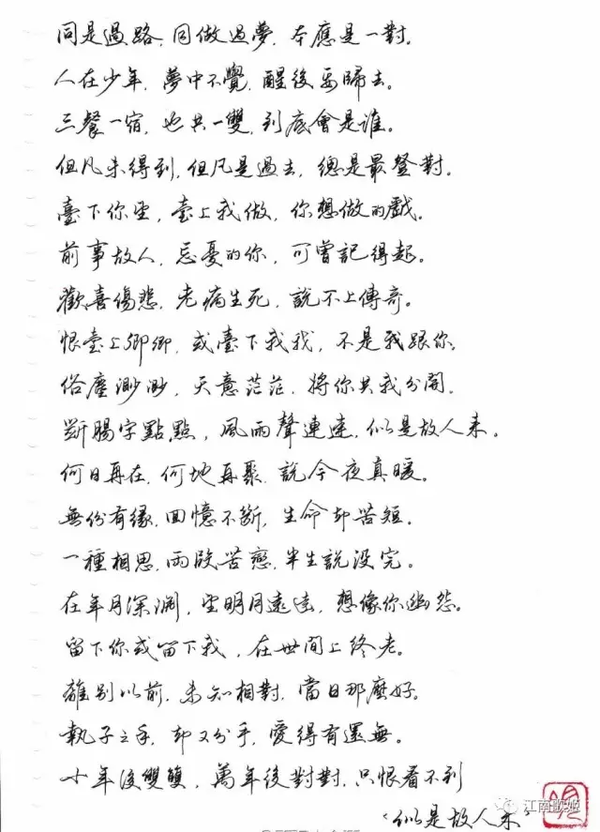 同是過路，同做過夢，本應是一對。
人在少年，夢中不覺，醒後要歸去。
三餐一宿，也共一雙，到底會是誰。
但凡未得到，但凡是過去，總是最登對。
臺下你望，臺上我做，你想做的戲。
前事故人，忘憂的你，可曾記得起。
歡喜傷悲，老病生死，說不上傳奇。
恨臺上卿卿，或臺下我我，不是我跟你。
俗塵渺渺，天意茫茫，將你共我分開。
斷腸字點點，風雨聲連連，似是故人來。
何日再在，何地再聚，說今夜真暖。
無份有緣，回憶不斷，生命卻苦短。
一種相思，兩段苦戀，半生說沒完。
在年月深淵，望明月遠遠，想像你幽怨。
留下你或留下我，在世間上終老。
離別以前，未知相對，當日那麼好。
執子之手，卻又分手，愛得有還無。
十年後雙雙，萬年後對對，只恨看不到
江南歌姬
“似是故人來”